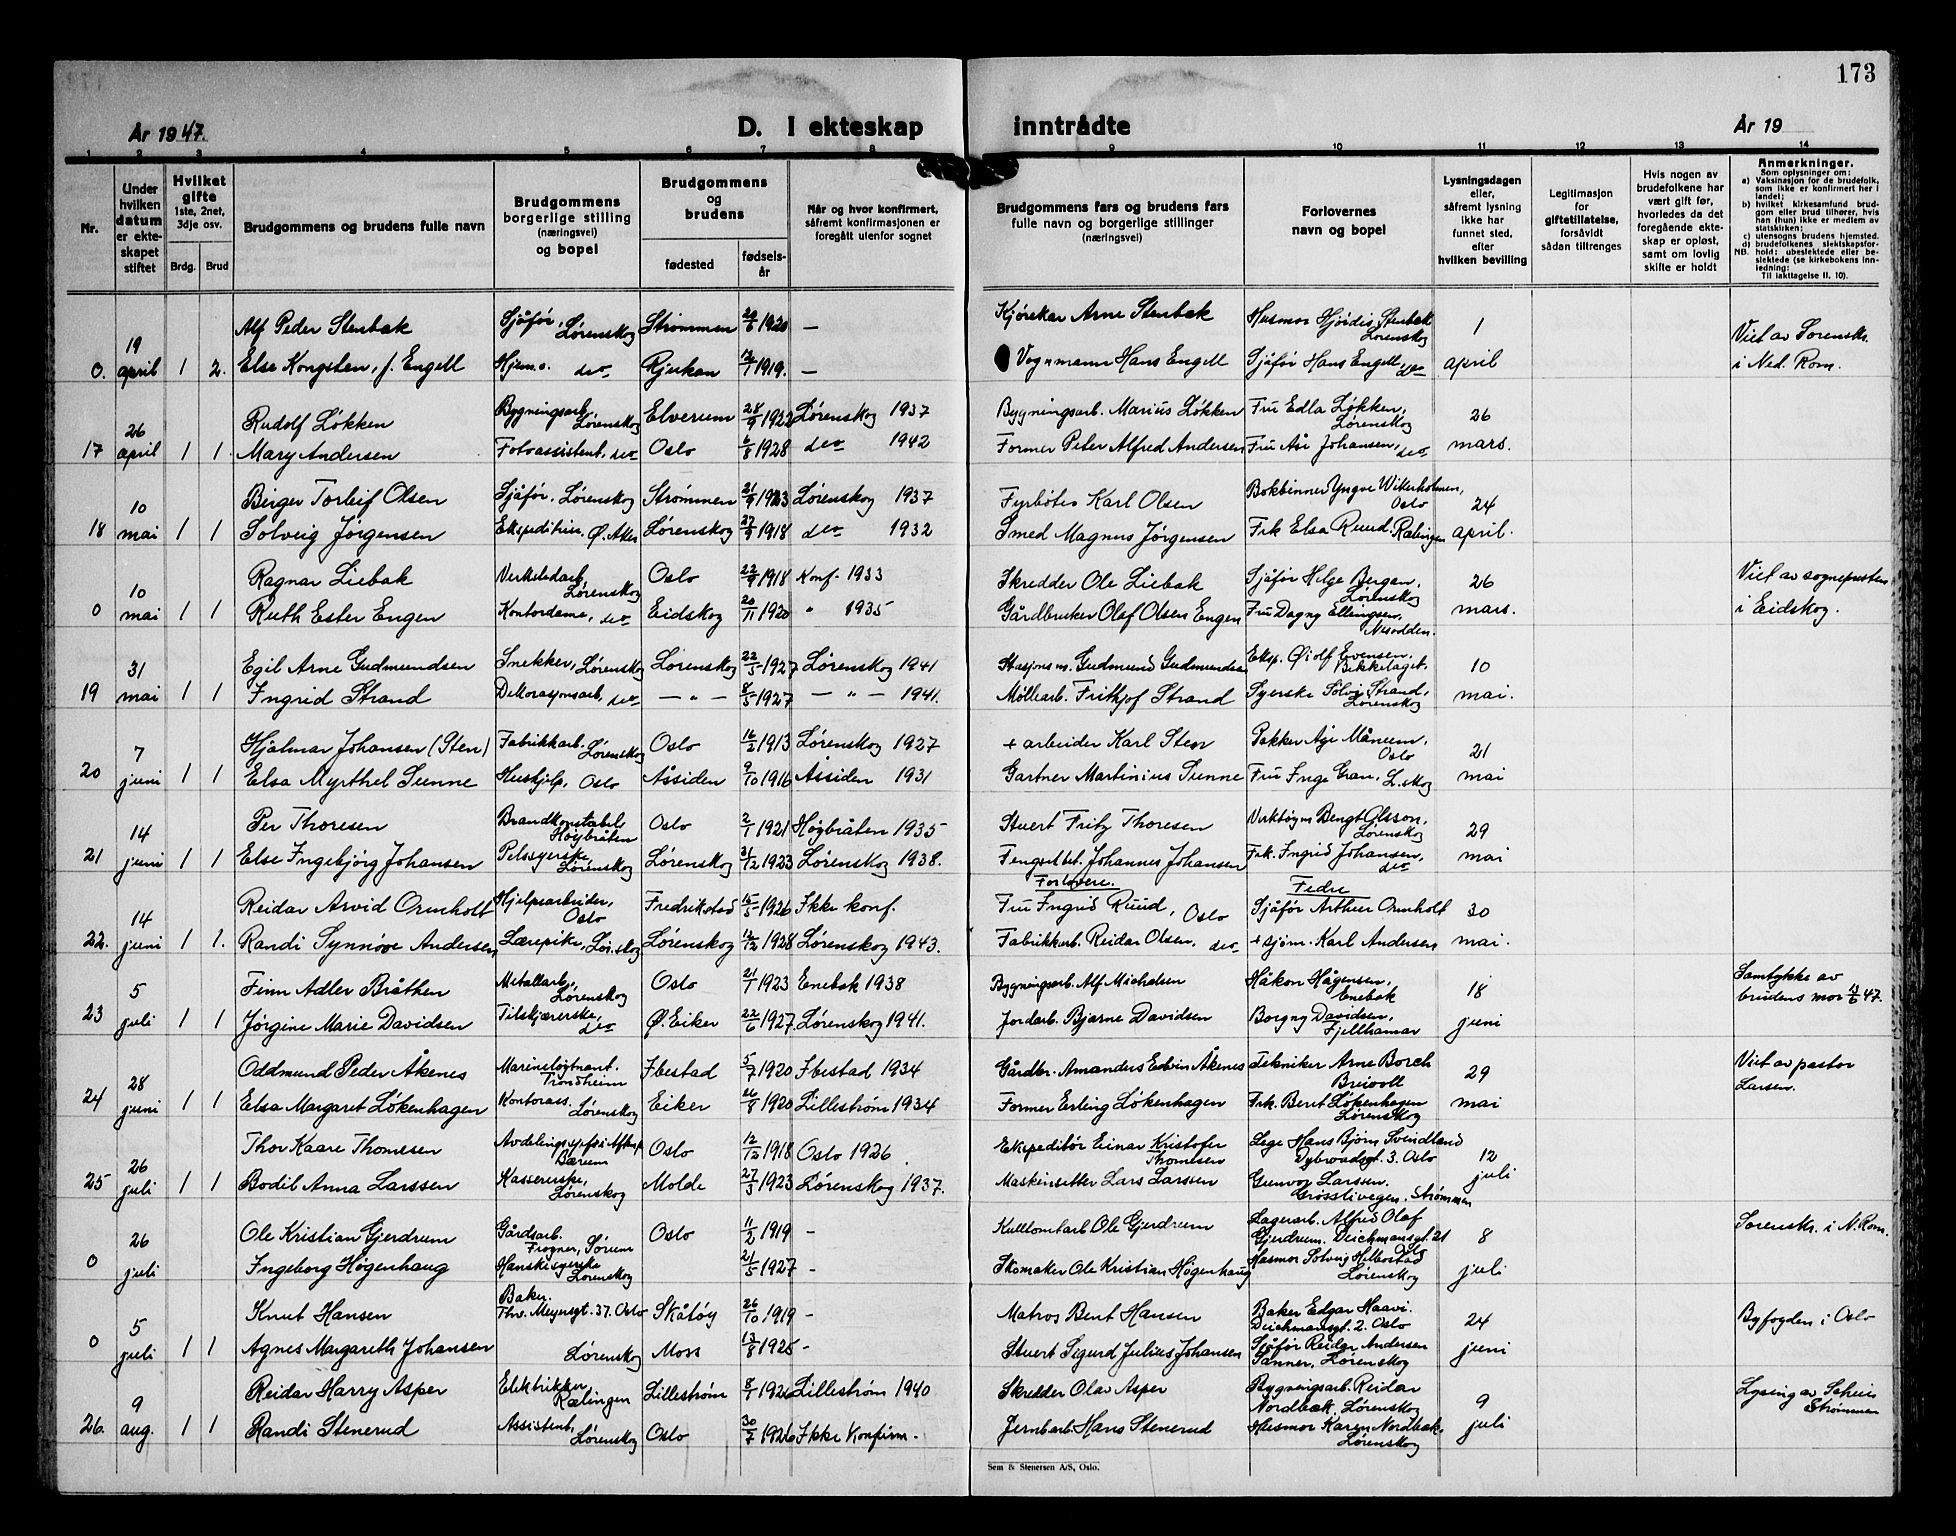 173
År 1947.
D. I ekteskap inntrådte
År 19
1 2 3 4 5 6 7 8 9 10 11 12 13 14
Nr.
Under hvilken datum er ekteskapet stiftet
Hvilket gifte 1ste, 2net, 3dje osv.
Brdg. Brud
Brudgommens og brudens fulle navn
Brudgommens borgerlige stilling (næringsvei) og bopel
Brudgommens og brudens
fødested
fødselsår
Når og hvor konfirmert, såfremt konfirmasjonen er foregått utenfor sognet
Brudgommens fars og brudens fars fulle navn og borgerlige stillinger (næringsvei)
Forlovernes navn og bopel
Lysningsdagen eller, såfremt lysning ikke har funnet sted, efter hvilken bevilling
Legitimasjon for giftetillatelse, forsåvidt sådan tiltrenges
Hvis nogen av brudefolkene har vært gift før, hvorledes da det foregående ekteskap er opløst, samt om lovlig skifte er holdt
Anmerkninger.
Som oplysninger om:
a) Vaksinasjon for de brudefolk, som ikke er konfirmert her i landet;
b) hvilket kirkesamfund brudgom eller brud tilhører, hvis han (hun) ikke er medlem av statskirken;
c) utensogns brudens hjemsted.
d) brudefolkenes slektskapsforhold: ubeslektede eller beslektede (se kirkebokens innledning:
NB. Til iakttagelse II. 10).
19 Alf Peder Stenbak Sjåfør, Lørenskog Strømmen 1920 — Kjørekar Arne Stenbak Husmor Hjørdis Stenbak Lørenskog 1 Viet av Sorenskr.
0. april 1 2. Else Kongsten, f. Engell Hjem.v. do Rjukan 1919. — Vognmann Hans Engell Sjåfør Hans Engell, do april i Ned. Rom.
26 Rudolf Løkken Bygningsarb. Lørenskog Elverum 28/9 1922 Lørenskog 1937 Bygningsarb. Marius Løkken Fru Edla Løkken, Lørenskog 26
17 april 1 1 Mary Andersen Fotoassistent, do Oslo 1928 do 1942 Former Peter Alfred Andersen Fru Åse Johansen, do mars.
10 Birger Torleif Olsen Sjåfør, Lørenskog Strømmen 21/9 1923 Lørenskog 1937 Fyrbøter Karl Olsen Bokbinner Yngve Oslo 24
18 mai 1 1 Solveig Jørgensen Ekspeditrise, Ø. Aker Lørenskog 27/9 1918 do 1932 Smed Magnus Jørgensen Frk Elsa Ruud, Rælingen april.
10 Ragnar Liebak Verkstedarb, Lørenskog Oslo 22/9 1918 Konf. 1933 Skredder Ole Liebak Sjåfør Helge Bergan, Lørenskog 26 Viet av sognepresten
0 mai 1 1 Ruth Ester Engen Kontordame, do Eidskog 20/11 1920 " 1935 Gårdbruker Olaf Olsen Engen Fru Dagny Ellingsen, Nesodden. mars. i Eidskog.
31 Egil Arne Gudmundsen Snekker, Lørenskog Lørenskog 22/5 1927 Lørenskog 1941 Stasjonsm. Gudmund Gudmundsen Eksp. Øiolf Evensen, Bekkelaget. 10
19 mai 1 1 Ingrid Strand Dekorasjonsarb, do — " — 8/5 1927 — " — 1941. Møllearb. Frithjof Strand Syerske Sølvi Strand, Lørenskog mai.
7 Hjalmar Johansen (Sten) Fabrikkarb. Lørenskog Oslo 16/2 1913 Lørenskog 1927 + arbeider Karl Sten Pakker Age Månum, Oslo 21
20 juni 1 1 Elsa Myrthel Sunne Hushjelp, Oslo Åssiden 9/10 1916 Åssiden 1931 Gartner Martinius Sunne Fru Inge Gran, L.skog mai
14 Per Thoresen Brandkonstabel Høybråten Oslo 2/1 1921 Høybråten 1935 Stuert Fritz Thoresen Verktøym Bengt Olsson, Lørenskog 29
21 juni 1 1 Else Ingebjörg Johansen Pelssyerske Lørenskog Lørenskog 31/12 1923 Lørenskog 1938. Fengselsbt. Johannes Johansen Frk. Ingrid Johansen, do mai
Forlovere. Fedre
14 Reidar Arvid Ormholt Hjelpearbeider, Oslo Fredrikstad 15/5 1926 Ikke konf. Fru Ingrid Ruud, Oslo Sjåfør Arthur Ormholt 30
22. juni 1 1. Randi Synnøve Andersen, Lærepike, Lør.skog Lørenskog 12/12 1928 Lørenskog 1943. Fabrikkarb. Reidar Olsen, do + sjøm. Karl Andersen mai.
5 Finn Adler Bråthen Metallarb, Lørenskog Oslo 21/1 1923 Enebak 1938 Bygningsarb. Alf Michalsen Håkon Hågensen, Enebak 18 Samtykke av
23 juli 1 1 Jörgine Marie Davidsen do Ø. Eiker 22/6 1927 Lørenskog 1941. Jordarb. Bjarne Davidsen Borgny Davidsen, Fjellhamar juni brudens mor 47.
28 Oddmund Peder Åkenes Marineløytnant. Trondheim Ibestad 5/7 1920 Ibestad 1934 Gårdbr. Amandus Edvin Åkenes Tekniker Arne Borch Breivoll 29 Viet av pastor
24 juni 1 1 Elsa Margaret Løkenhagen Kontorass. Lørenskog Eiker 26/8 1920 Lillestrøm 1934 Former Erling Løkenhagen Frk. Berit Løkenhagen Lørenskog mai Larsen.
26 Thor Kaare Thomesen Bærum Oslo 12/12 1918 Oslo 1926. Ekspeditør Einar Kristofer Thomesen Lege Hans Bjørn Svindland Dybwadsgt. 3. Oslo 12
25 juli 1 1 Bodil Anna Larssen Kassererske, Lørenskog Molde 27/3 1923 Lørenskog 1937. Maskinsetter Lars Larssen Gunvor Larssen. Grosslivegen. Strømmen juli
26 Ole Kristian Gjerdrum Gårdsarb. Frogner, Sørum Oslo 11/2 1919 - Kulltomtarb Ole Gjerdrum Lagerarb. Alfred Olaf Gjerdrum. Deichmansgt. 21 Oslo 8 Sorenskr. i N. Rom.
0 juli 1 1 Ingeborg Høgenhaug Hanskesyerske Lørenskog 21/5 1927 - Skomaker Ole Kristian Høgenhaug Husmor Solveig Helbostad Lørenskog juli
5 Knut Hansen Baker. Thv. Meyersgt. 37. Oslo Skåtøy 26/10 1919 - Matros Bent Hansen Baker Edgar Haavi. Deichmansgt. 2. Oslo 24 Byfogden i Oslo
0 juli 1 1 Agnes Margareth Johansen Lørenskog Moss 13/8 1925 - Stuert Sigurd Julius Johansen Sjåfør Reidar Andersen Sanner, Lørenskog juni
9 Reidar Harry Asper Elektrikker Rælingen Lillestrøm 8/1 1926 Lillestrøm 1940 Skredder Olav Asper Bygningsarb. Reidar Nordbæk. Lørenskog 9 Lysing av Strømmen
26. aug. 1 1 Randi Stenerud Assistent, Lørenskog Oslo 30/7 1926 Ikke Konfirm. Jernbarb. Hans Stenerud Husmor Karen Nordbæk, Lørenskog juli
Sem & Stenersen A/S, Oslo.